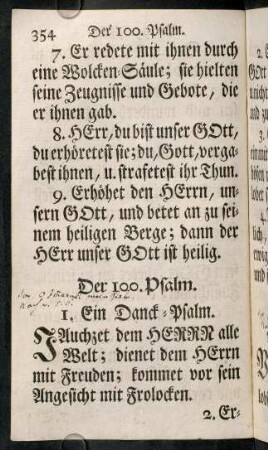 354 Der 100. Psalm.
7. Er redete mit ihnen durch
eine Wolcken-Säule; sie hielten
seine Zeugnisse und Gebote, die
er ihnen gab.
8. HErr, du bist unser GOtt,
du erhöretest sie; du, Gott, verga-
best ihnen, u. strafetest ihr Thun.
9. Erhöhet den HErrn, un-
sern GOtt, und betet an zu sei-
nem heiligen Berge; dann der
HErr unser GOtt ist heilig.
Der 100. Psalm.
1. Ein Danck-Psalm.
JAuchzet dem HERRN alle
Welt; dienet dem HErrn
mit Freuden; kommet vor sein
Angesicht mit Frolocken.
2. Er-